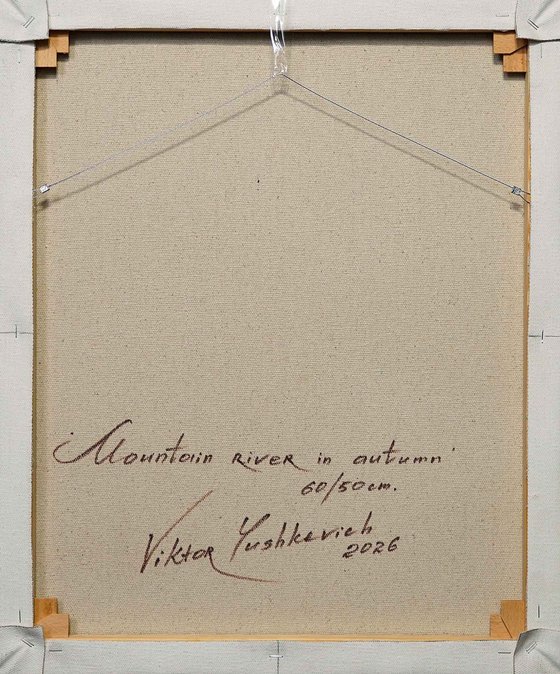 Mountain river in autumn
60/50cm.
Viktor Yushkevich
2026